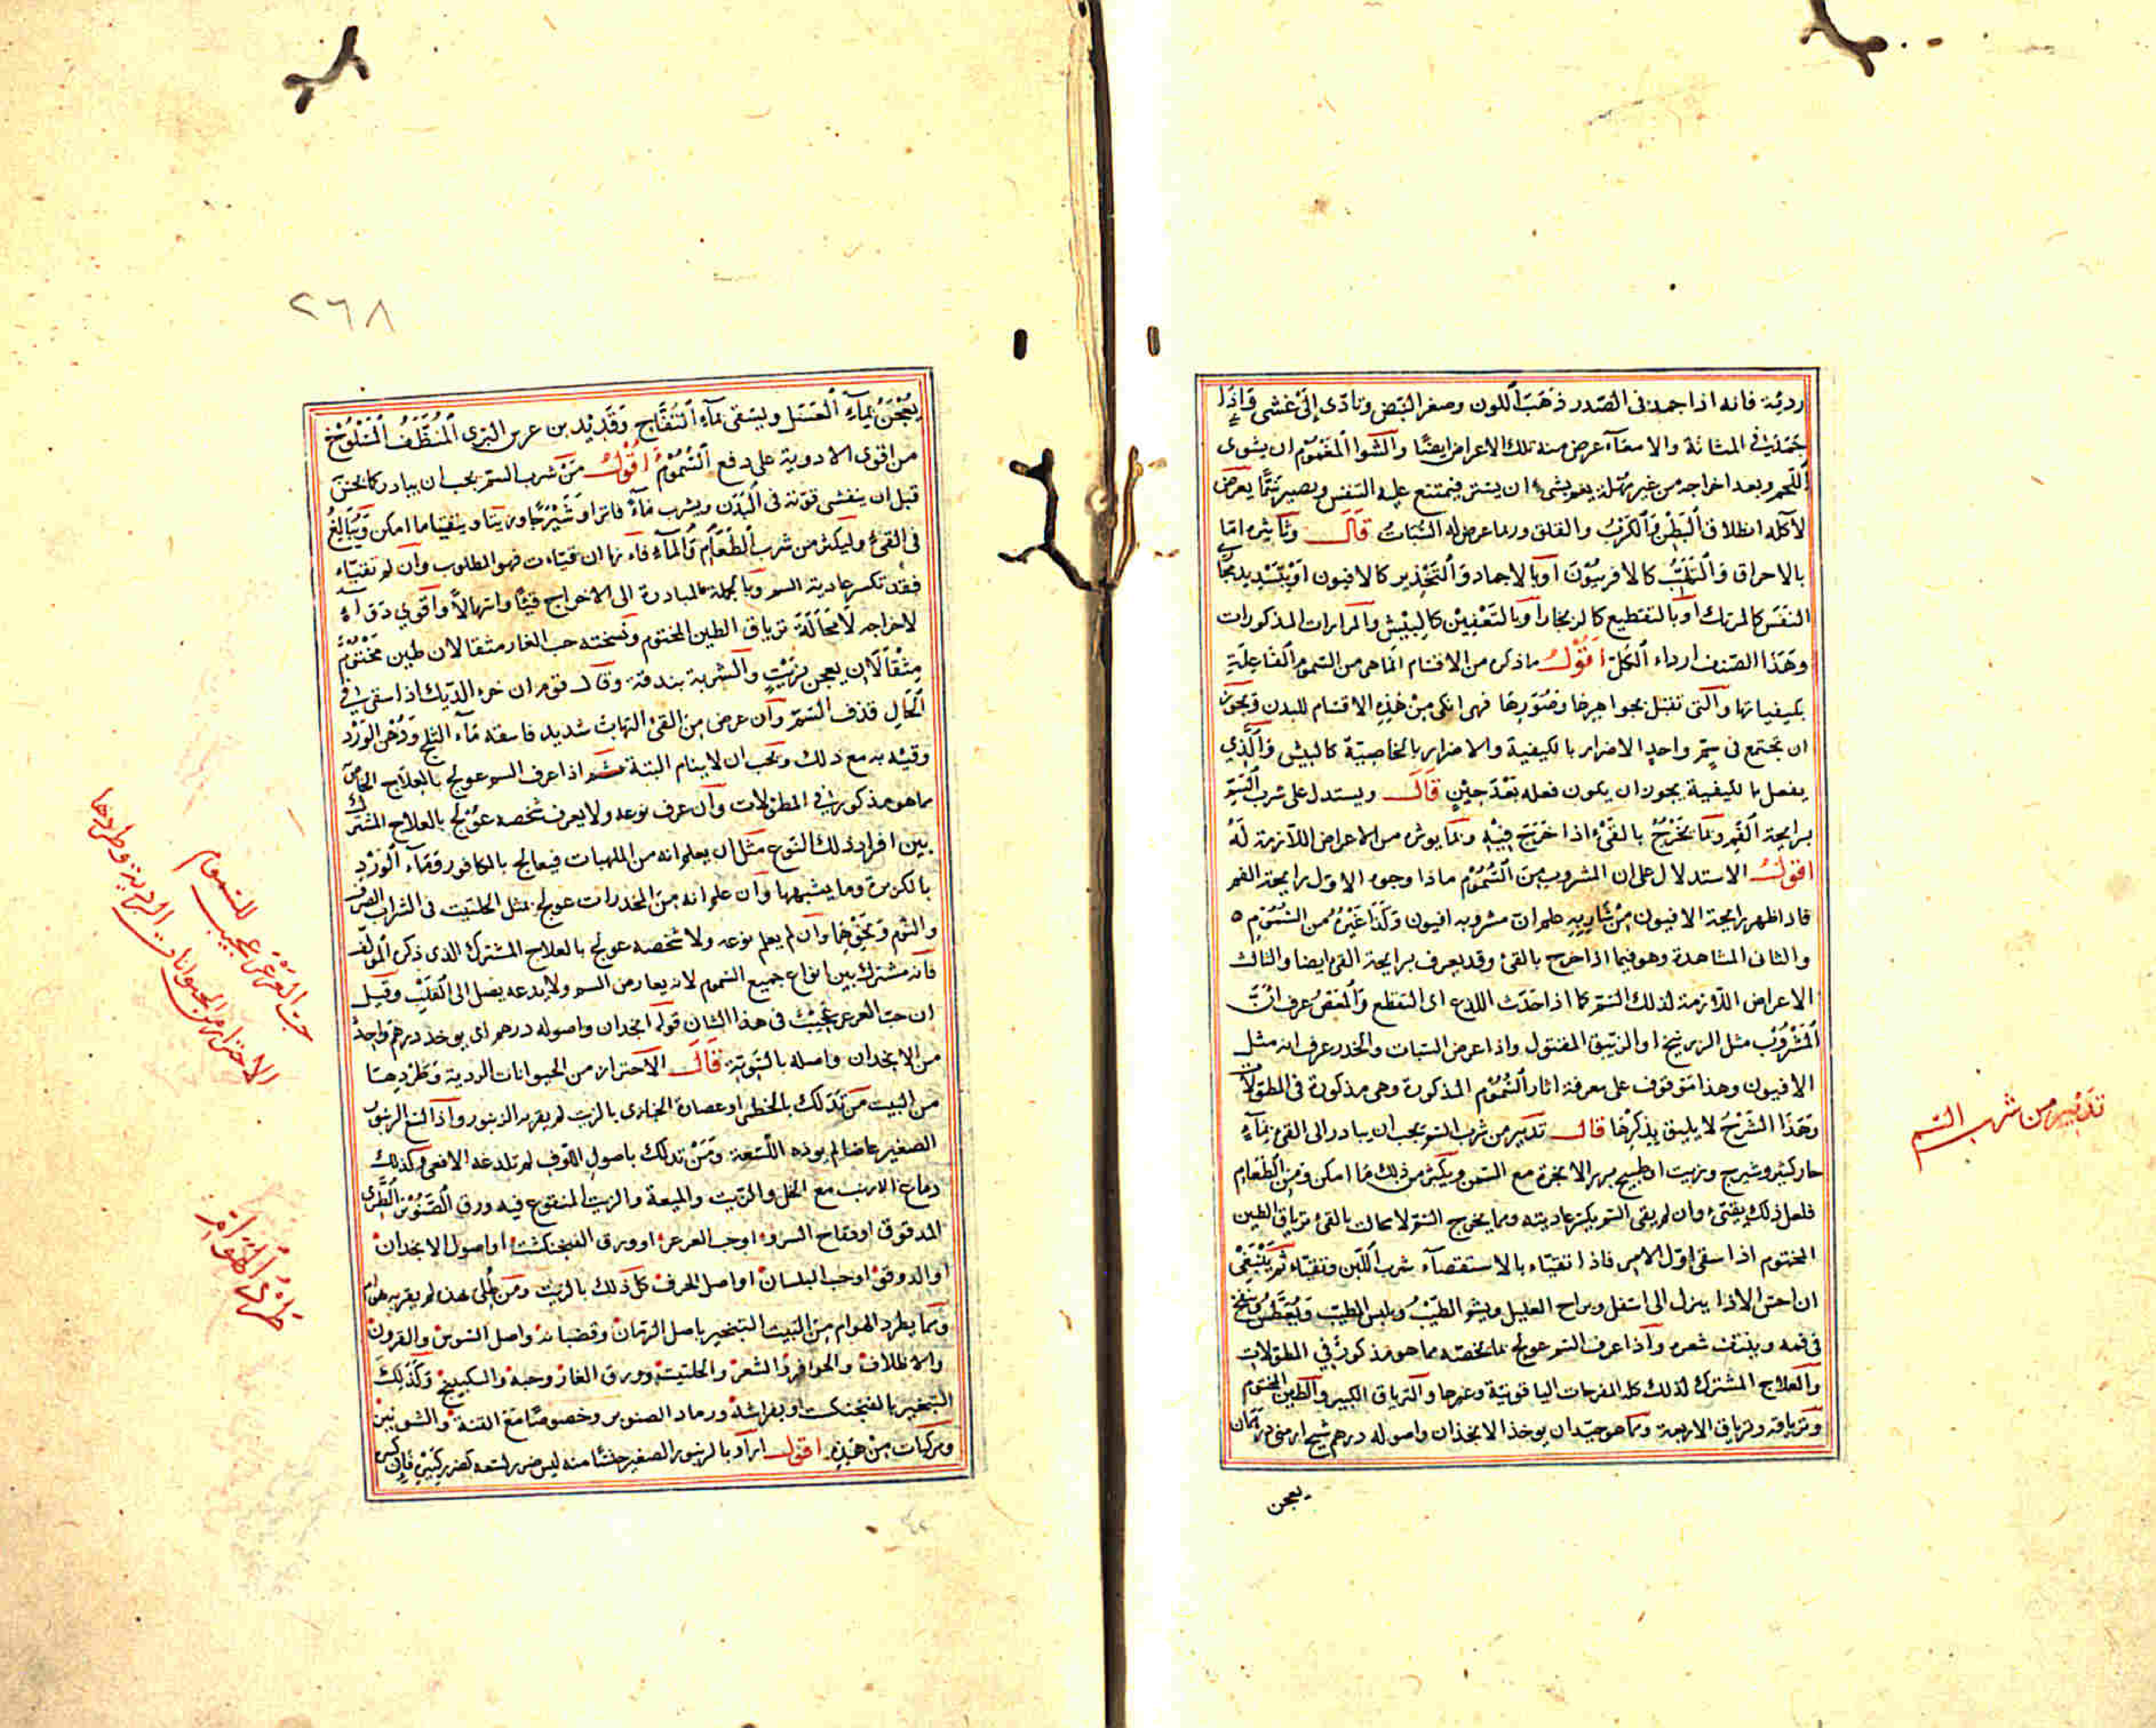 ردية فانه اذا جمد في الصدر ذهب اللون وصغر النبض وتأدى الى غشى واذا
جمد في المثانة والامعآء عرض منه تلك الاعراض ايضًا والشوا المغموم ان يشوى
اللحم وبعد اخراجه من غير مهلة يغم بشئ ان يستر فيمتنع عليه التنفس ويصير سمًّا يعرض
لآكله انطلاق البطن والكرب والقلق وربما عرض له السبات قال وتأثيره اما
بالاحراق والتلهب كالافربيون او بالاجماد والتخذير كالافيون او بتسديد مجا
النفس كالمرتك او بالتقطيع كالزنجار او بالتعفين كالبيش والمرارات المذكورات
وهذا الصنف ارداء الكل اقول ما ذكره من الاقسام انما هي من السموم الفاعلة
بكيفياتها والتي تقتل بجواهرها وصورها فهي انكى من هذه الاقسام للبدن ويجوز
ان تجتمع في سم واحد الاضرار بالكيفية والاضرار بالخاصية كالبيش والذي
يفعل بالكيفية يجوز ان يكون فعله بعد حين قال ويستدل على شرب السم
برايحة الفم وبما يخرج بالقئ اذا خرج فيه وبما يوثره من الاعراض اللازمة له
اقول الاستدلال على ان المشروب من السموم ماذا وجوه الاول رايحة الفم
فاذا ظهر رايحة الافيون من شاربه علم ان مشروبه افيون وكذا غيره من السموم
والثاني المشاهدة وهو فيما اذا خرج بالقئ وقد يعرف برايحة القئ ايضا والثالث
الاعراض اللازمة لذلك السم كما اذا حدث اللدع اى التقطع والمغص عرف ان
المشروب مثل الزرنيخ او الزئبق المقتول واذا عرض السبات والخدر عرف انه مثل
الافيون وهذا موقوف على معرفة اثار السموم المذكورة وهي مذكورة في المطولات
وهذا الشرح لا يليق بذكرها قال تدبير من شرب السم يجب ان يبادر الى القئ بمآء
حار كثير وشيرج وزيت او طبيخ بزر الانجرة مع السمن ويكثر من ذلك ما امكن ومن الطعام
فلعل ذلك يقئ وان لم يقئ السم يكسر عاديته ومما يخرج السم لا محالة بالقئ ترياق الطين
المختوم اذا سقى اول الامر فاذا تقياء بالاستقصآء شرب اللبن وتقياء ثم ينبغي
ان احس الاذا ينزل الى اسفل ويراح العليل ويشم الطيب ويلبس الطيب ويعطس وينفخ
في فمه وينتف شعره واذا عرف السم عولج بما يخصه مما هو مذكور في المطولات
والعلاج المشترك لذلك كله المفرحات الياقوتية وغيرها والترياق الكبير والطين المختوم
وترياقه وترياق الاربعة ومما هو جيد ان يوخذ الانجذان واصوله درهم شيح ارمني درهمان
يعجن
تدبير من شرب السم
٢٦٨
يعجن بمآء العسل ويسقى بمآء التفاح وقديد بن عرس البري المنظف المسلوخ
من اقوى الادوية على دفع السموم اقول من شرب السم يجب ان يبادر كما يحس
قبل ان يفشى قوته في البدن ويشرب مآءً فاترا وشيرجا وزيتا ويتقيا ما امكن ويبالغ
في القئ وليكثر من شرب الطعام والمآء فانها ان قيئت فهو المطلوب وان لم تقيّاء
فقد تكسر عادية السم وبالجملة المبادرة الى الاخراج قيئا واسهالا واقوى دواء
لاخراجه لا محالة ترياق الطين المختوم ونسخته حب الغار مثقالان طين مختوم
مثقالان يعجن بزيت والشربة بندقة وقال قوم ان خرء الديك اذا سقى في
الحال قذف السم وان عرض من القئ التهاب شديد فاسقه مآء الثلج ودهن الورد
وقيئه به مع ذلك ويجب ان لا ينام البتة ثم اذا عرف السم عولج بالعلاج الخاص
مما هو مذكور في المطولات وان عرف نوعه ولا يعرف شخصه عولج بالعلاج المشترك
بين افراد ذلك النوع مثل ان يعلم انه من الملهبات فيعالج بالكافور ومآء الورد
بالكزبرة وما يشبهها وان علم انه من المخدرات عولج بمثل الحلتيت في الشراب الصرف
والثوم ونحوها وان لم يعلم نوعه ولا شخصه عولج بالعلاج المشترك الذي ذكره المولف
فانه مشترك بين انواع جميع السموم لانه يعارض السم ولا يدعه يصل الى القلب وقيل
ان حب العرعر عجيب في هذا الشان قوله انجدان واصوله درهم اى يوخذ درهم واحد
من الانجدان واصله بالسوية قال الاحتراز من الحيوانات الردية وطردها
من البيت من تدلك بالخطمى او عصارة الخبازى بالزيت لم يقربه الزنبور واذا لسع الزنبور
الصغير عاضا لم يوذه اللسعة ومن تدلك باصول اللوف لم تلدغه الافعى وكذلك
دماغ الارنب مع الخل والزيت والميعة والزيت المنقوع فيه ورق الصنوبر الطرى
المدقوق او فقاح السرو او حب العرعر او ورق الفنجنكشت او اصول الانجدان
او الدوقو او حب البلسان او اصل الحرف كل ذلك بالزيت ومن طلى بهذه لم يقربه هوام
ومما يطرد الهوام من البيت التبخير باصل الرمان وقضبانه واصل السوس والقرون
والاظلاف والحوافر والشعر والحلتيت وورق الغار وحبه والسكبينج وكذلك
التبخير بالفنجنكشت او بفراشه ورماد الصنوبر وخصوصا مع القنة والشونيز
ومركبات من هذه اقول اراد بالزنبور الصغير جنسا منه ليس ضرر لسعه كضرر كبيره فان كبيره
حب العرعر عجيب للسموم
الاحتراز من الحيوانات الردية وطردها
طرد الهوام